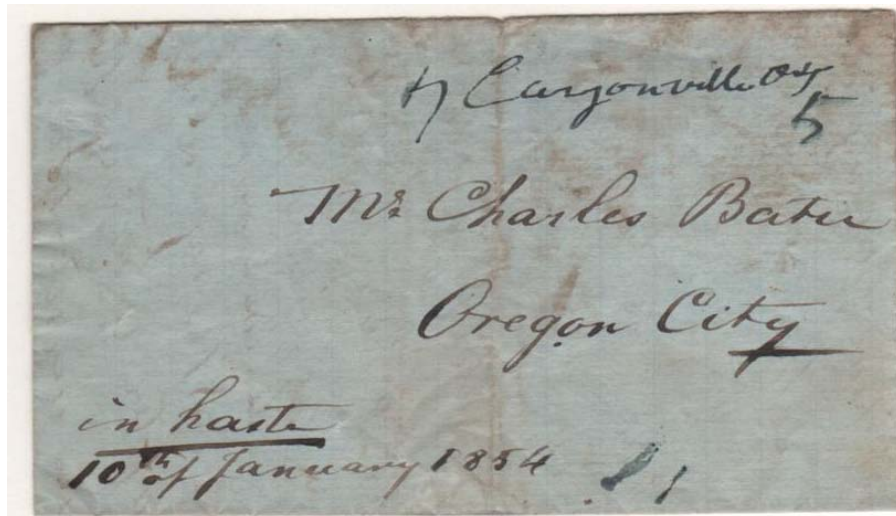 Canyonville O.T.
5
Mr Charles
Oregon City
in haste
10th of January 1854